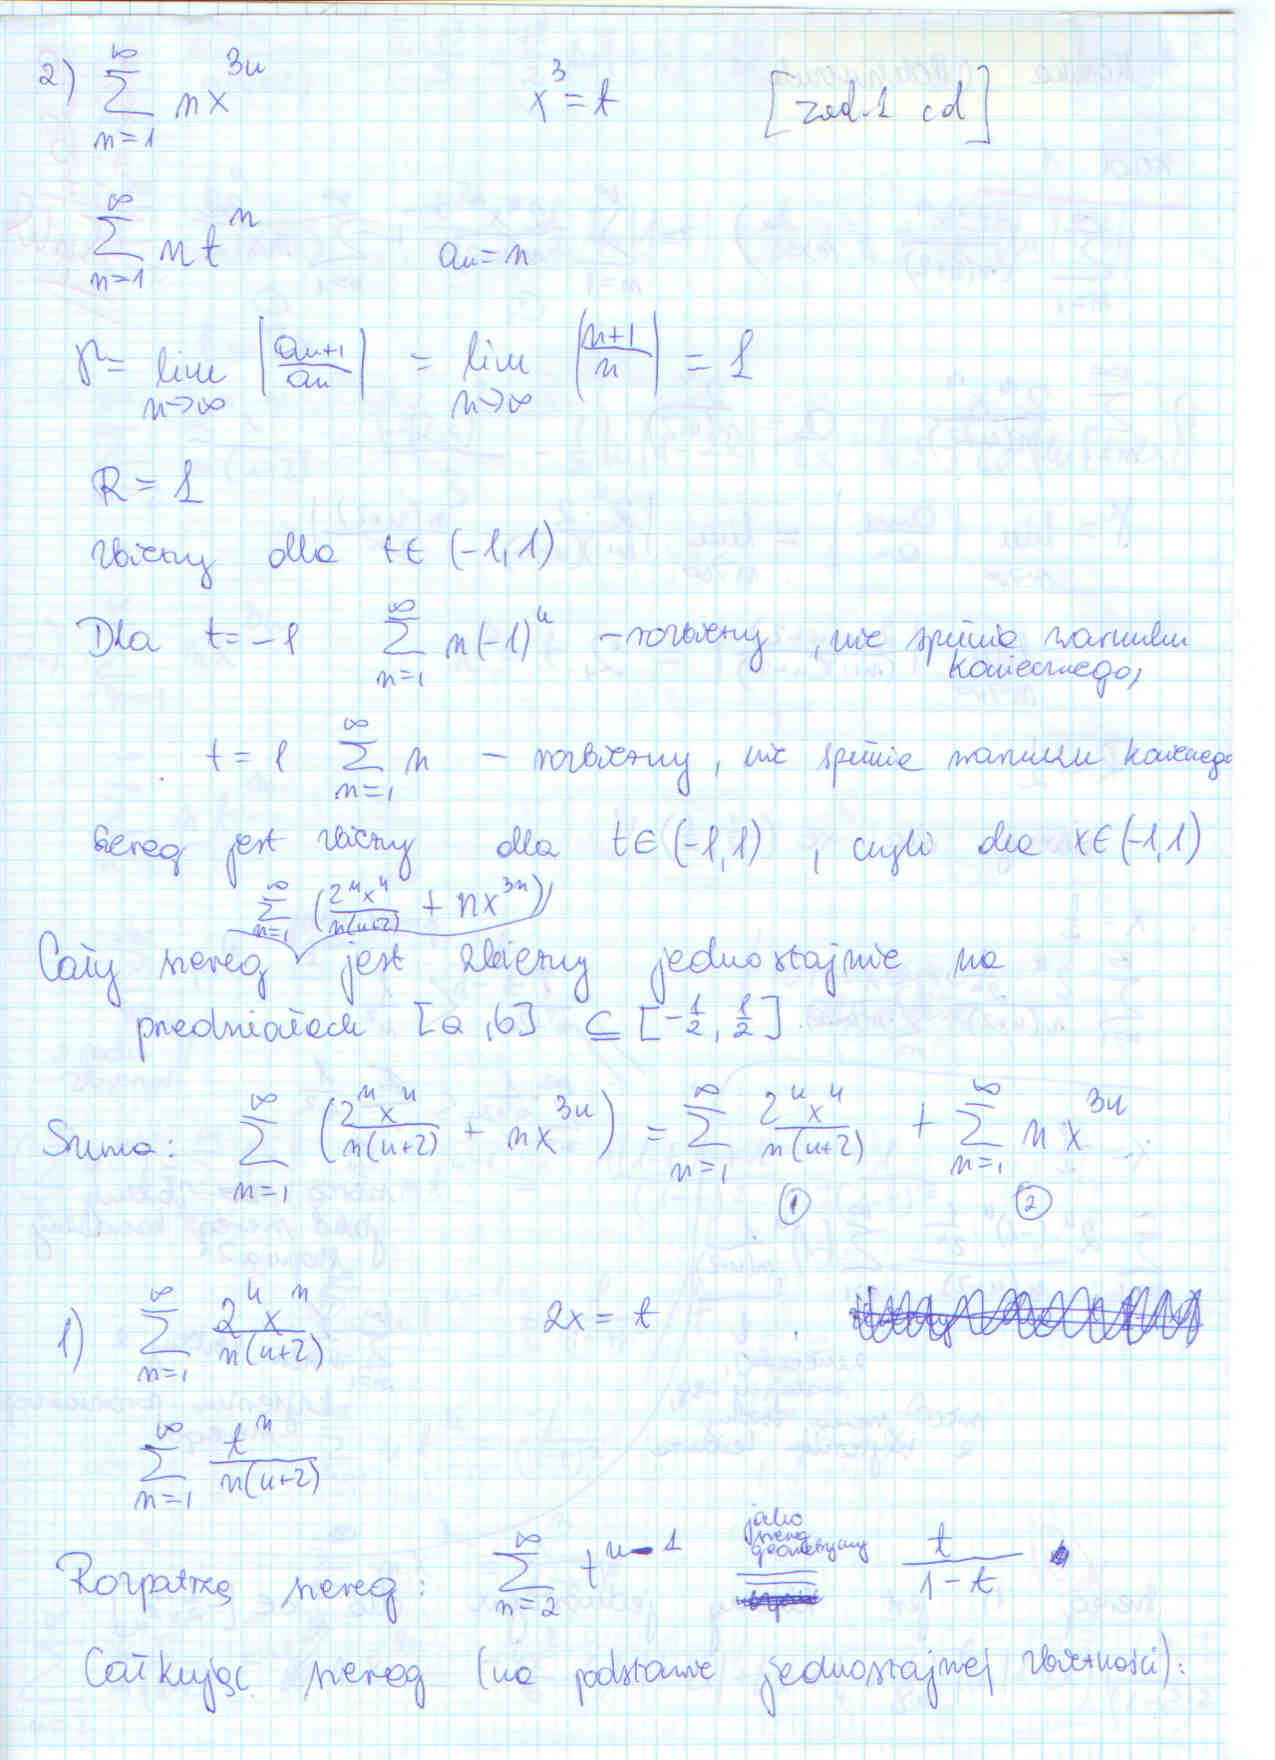 2) \sum_{n=1}^{\infty} n x^{3n}   x^3 = t   [zad. 1 cd]
\sum_{n=1}^{\infty} n t^n   a_n = n
r = \lim_{n→∞} |\frac{a_{n+1}}{a_n}| = \lim_{n→∞} |\frac{n+1}{n}| = 1
R = 1
zbieżny dla t ∈ (-1, 1)
Dla t = -1   \sum_{n=1}^{\infty} n(-1)^n – rozbieżny, nie spełnia warunku
koniecznego,
t = 1   \sum_{n=1}^{\infty} n – rozbieżny, nie spełnia warunku koniecznego
Szereg jest zbieżny dla t ∈ (-1, 1), czyli dla x ∈ (-1, 1)
\sum_{n=1}^{\infty} (\frac{2^n x^n}{n(n+2)} + n x^{3n})
Cały szereg jest zbieżny jednostajnie na
przedziałach [a, b] ⊆ [-\frac{1}{2}, \frac{1}{2}]
Suma: \sum_{n=1}^{\infty} (\frac{2^n x^n}{n(n+2)} + n x^{3n}) = \sum_{n=1}^{\infty} \frac{2^n x^n}{n(n+2)} + \sum_{n=1}^{\infty} n x^{3n}
① ②
1) \sum_{n=1}^{\infty} \frac{2^n x^n}{n(n+2)}   2x = t
\sum_{n=1}^{\infty} \frac{t^n}{n(n+2)}
jako
szereg
geometryczny
Rozpatrzę szereg: \sum_{n=2}^{\infty} t^{n-1} = \frac{t}{1-t}
Całkując szereg (na podstawie jednostajnej zbieżności):